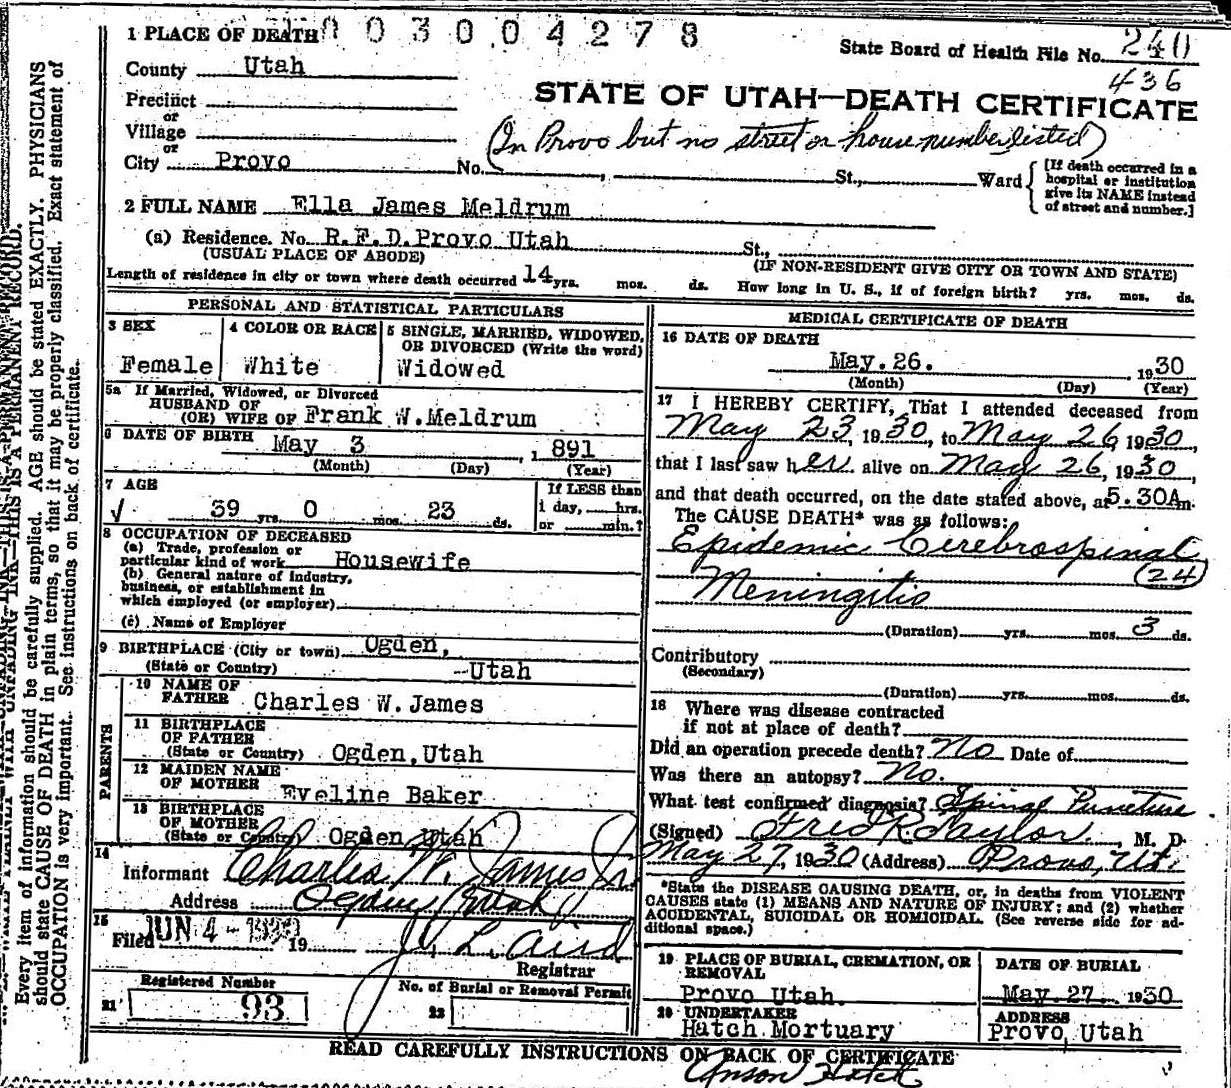 1 PLACE OF DEATH 003004278
State Board of Health File No. 240
436
County Utah
STATE OF UTAH—DEATH CERTIFICATE
Precinct
or
Village
or
City Provo No. (In Provo but no street or house number listed) St., Ward
[If death occurred in a
hospital or institution
give its NAME instead
of street and number.]
2 FULL NAME Ella James Meldrum
(a) Residence. No. R.F.D. Provo Utah St.,
(USUAL PLACE OF ABODE) (IF NON-RESIDENT GIVE CITY OR TOWN AND STATE)
Length of residence in city or town where death occurred 14 yrs. mos. ds. How long in U. S., if of foreign birth? yrs. mos. ds.
PERSONAL AND STATISTICAL PARTICULARS
3 SEX
Female
4 COLOR OR RACE
White
5 SINGLE, MARRIED, WIDOWED,
OR DIVORCED (Write the word)
Widowed
5a If Married, Widowed, or Divorced
HUSBAND OF
(OR) WIFE OF Frank W. Meldrum
6 DATE OF BIRTH May 3, 1891
(Month) (Day) (Year)
7 AGE
√ 39 yrs. 0 mos. 23 ds.
If LESS than
1 day, hrs.
or min.?
8 OCCUPATION OF DECEASED
(a) Trade, profession or
particular kind of work Housewife
(b) General nature of industry,
business, or establishment in
which employed (or employer)
(c) Name of Employer
9 BIRTHPLACE (City or town) Ogden,
(State or Country) Utah
PARENTS
10 NAME OF
FATHER Charles W. James
11 BIRTHPLACE
OF FATHER
(State or Country) Ogden, Utah
12 MAIDEN NAME
OF MOTHER Eveline Baker
13 BIRTHPLACE
OF MOTHER
(State or Country) Ogden, Utah
14
Informant Charles W. James Jr.
Address Ogden Utah
15
Filed JUN 4 - 1930 19
J. L. Aird
Registrar
Registered Number
21 93
No. of Burial or Removal Permit
22
MEDICAL CERTIFICATE OF DEATH
16 DATE OF DEATH
May. 26. 1930
(Month) (Day) (Year)
17 I HEREBY CERTIFY, That I attended deceased from
May 23, 1930, to May 26 1930,
that I last saw her alive on May 26, 1930,
and that death occurred, on the date stated above, at 5.30A m.
The CAUSE DEATH* was as follows:
Epidemic Cerebrospinal
(24)
Meningitis
(Duration) yrs. mos. 3 ds.
Contributory
(Secondary)
(Duration) yrs. mos. ds.
18 Where was disease contracted
if not at place of death?
Did an operation precede death? No Date of
Was there an autopsy? No.
What test confirmed diagnosis? Spinal Puncture
(Signed) Fred R Taylor, M. D.
May 27, 1930 (Address) Provo, Ut.
*State the DISEASE CAUSING DEATH, or, in deaths from VIOLENT
CAUSES state (1) MEANS AND NATURE OF INJURY; and (2) whether
ACCIDENTAL, SUICIDAL OR HOMICIDAL. (See reverse side for ad-
ditional space.)
19 PLACE OF BURIAL, CREMATION, OR
REMOVAL
Provo Utah.
DATE OF BURIAL
May. 27. 1930
20 UNDERTAKER
Hatch Mortuary
ADDRESS
Provo, Utah
READ CAREFULLY INSTRUCTIONS ON BACK OF CERTIFICATE
Anson Hatch
THIS IS A PERMANENT RECORD.
Every item of information should be carefully supplied. AGE should be stated EXACTLY. PHYSICIANS
should state CAUSE OF DEATH in plain terms, so that it may be properly classified. Exact statement of
OCCUPATION is very important. See instructions on back of certificate.